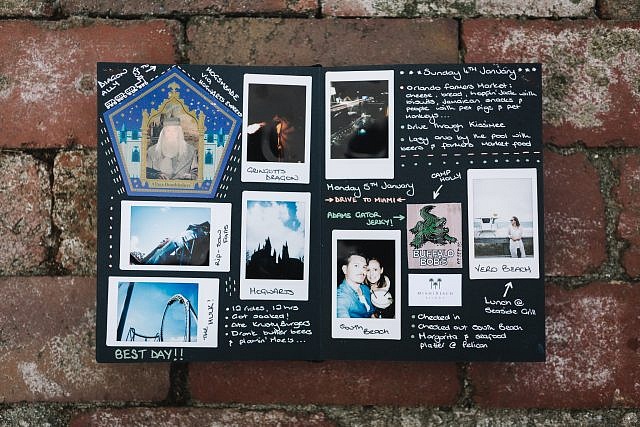 DRAGON
ALLY
HOGSMEADE
VIA
HOGWARTS EXPRESS
Albus Dumbledore
GRINGOTTS
DRAGON
RIP-SAW
FALLS
HOGWARTS
THE HULK!
• 12 rides, 12 hrs
• Got soaked!
• Ate Krusty Burgers
• Drank butter beers
& flamin' Moe's...
BEST DAY!!
Sunday 4TH January
• Orlando Farmers Market:
cheese, bread, Hoppin' Jack with
biscuits, Jamaican snacks &
people with pet pigs & pet
monkeys...
• Drive through Kissimee
• Lazy arvo by the pool with
beers & farmers market food
Monday 5TH January
→ DRIVE TO MIAMI ←
ADAMS GATOR
JERKY!
CAMP
HOLLY
BUFFALO
BOB'S
MIAMI BEACH
SOUTH
BEACH
VERO BEACH
LUNCH @
Seaside Grill
• Checked in
• Checked out South Beach
• Margarita & seafood
platter @ Pelican